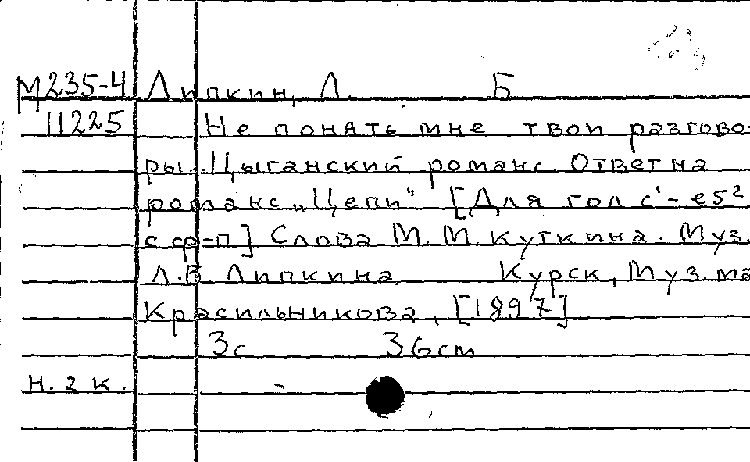 М235-4 Липкин, Л. Б
11225 Не понять мне твои разгово-
ры. Цыганский романс. Ответ на
романс „Цепи“ [Для гол с'-es²
с ср=п] Слова М. М. Куткина. Муз.
Л.В Липкина Курск, Муз. ма
Красильникова, [1897]
3с 36cm
Н. 2 к.